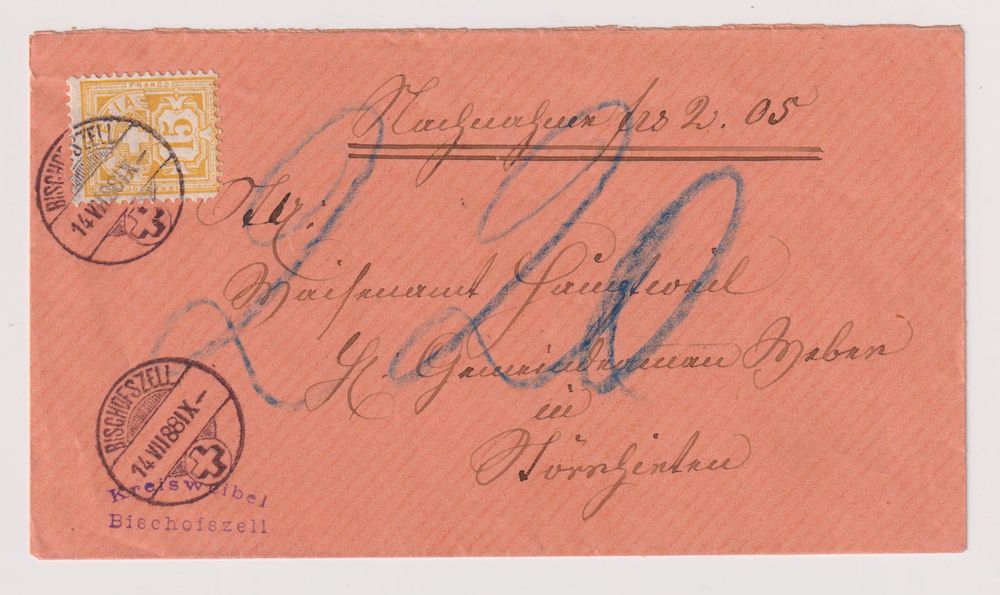 FRANCO
15
BISCHOFSZELL
14 VII 88 IX –
Nachnahme frs 2. 05
Hr:
Waisenamt Hauptweil
H. Gemeindeamman Weber
in
220
BISCHOFSZELL
14 VII 88 IX –
Kreisweibel
Bischofszell